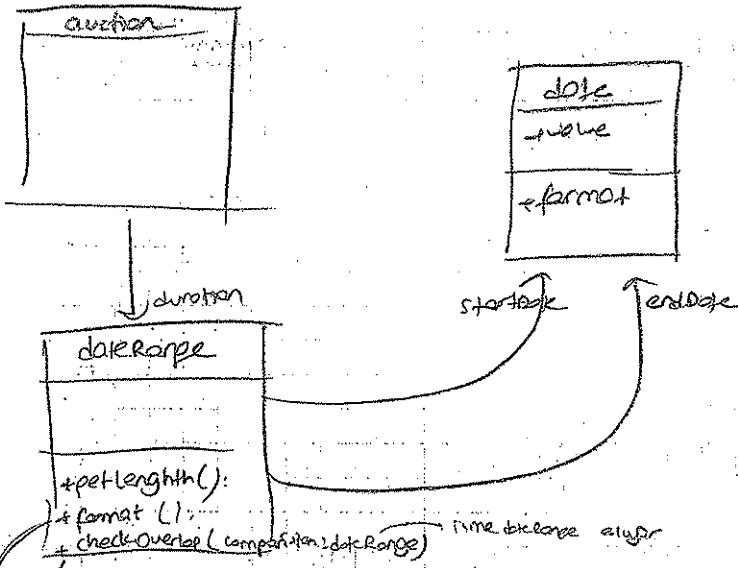 auction
date
+value
+format
duration
startDate
endDate
dateRange
+getLenghth():
+ format ():
+ checkOverlap( comparison: dateRange)